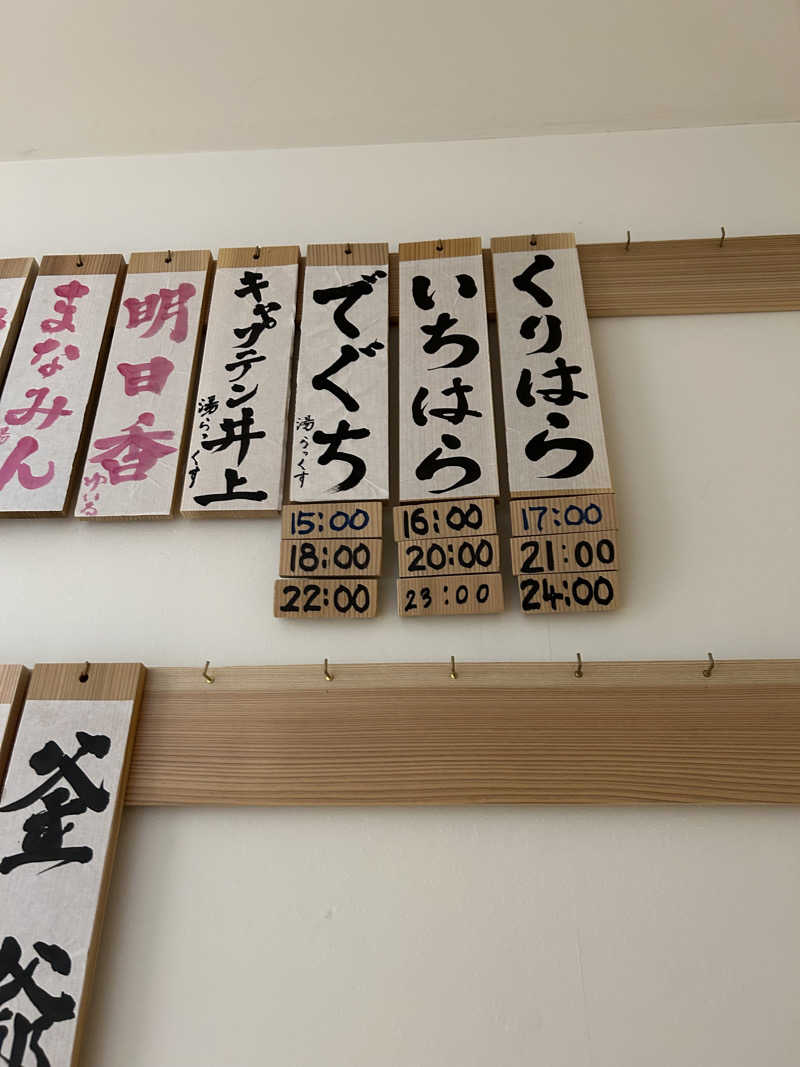 くりはら
17:00
21:00
24:00
いちはら
16:00
20:00
23:00
でぐち
湯らっくす
15:00
18:00
22:00
キャプテン井上
湯らっくす
明日香
ゆいる
まなみん
湯
釜